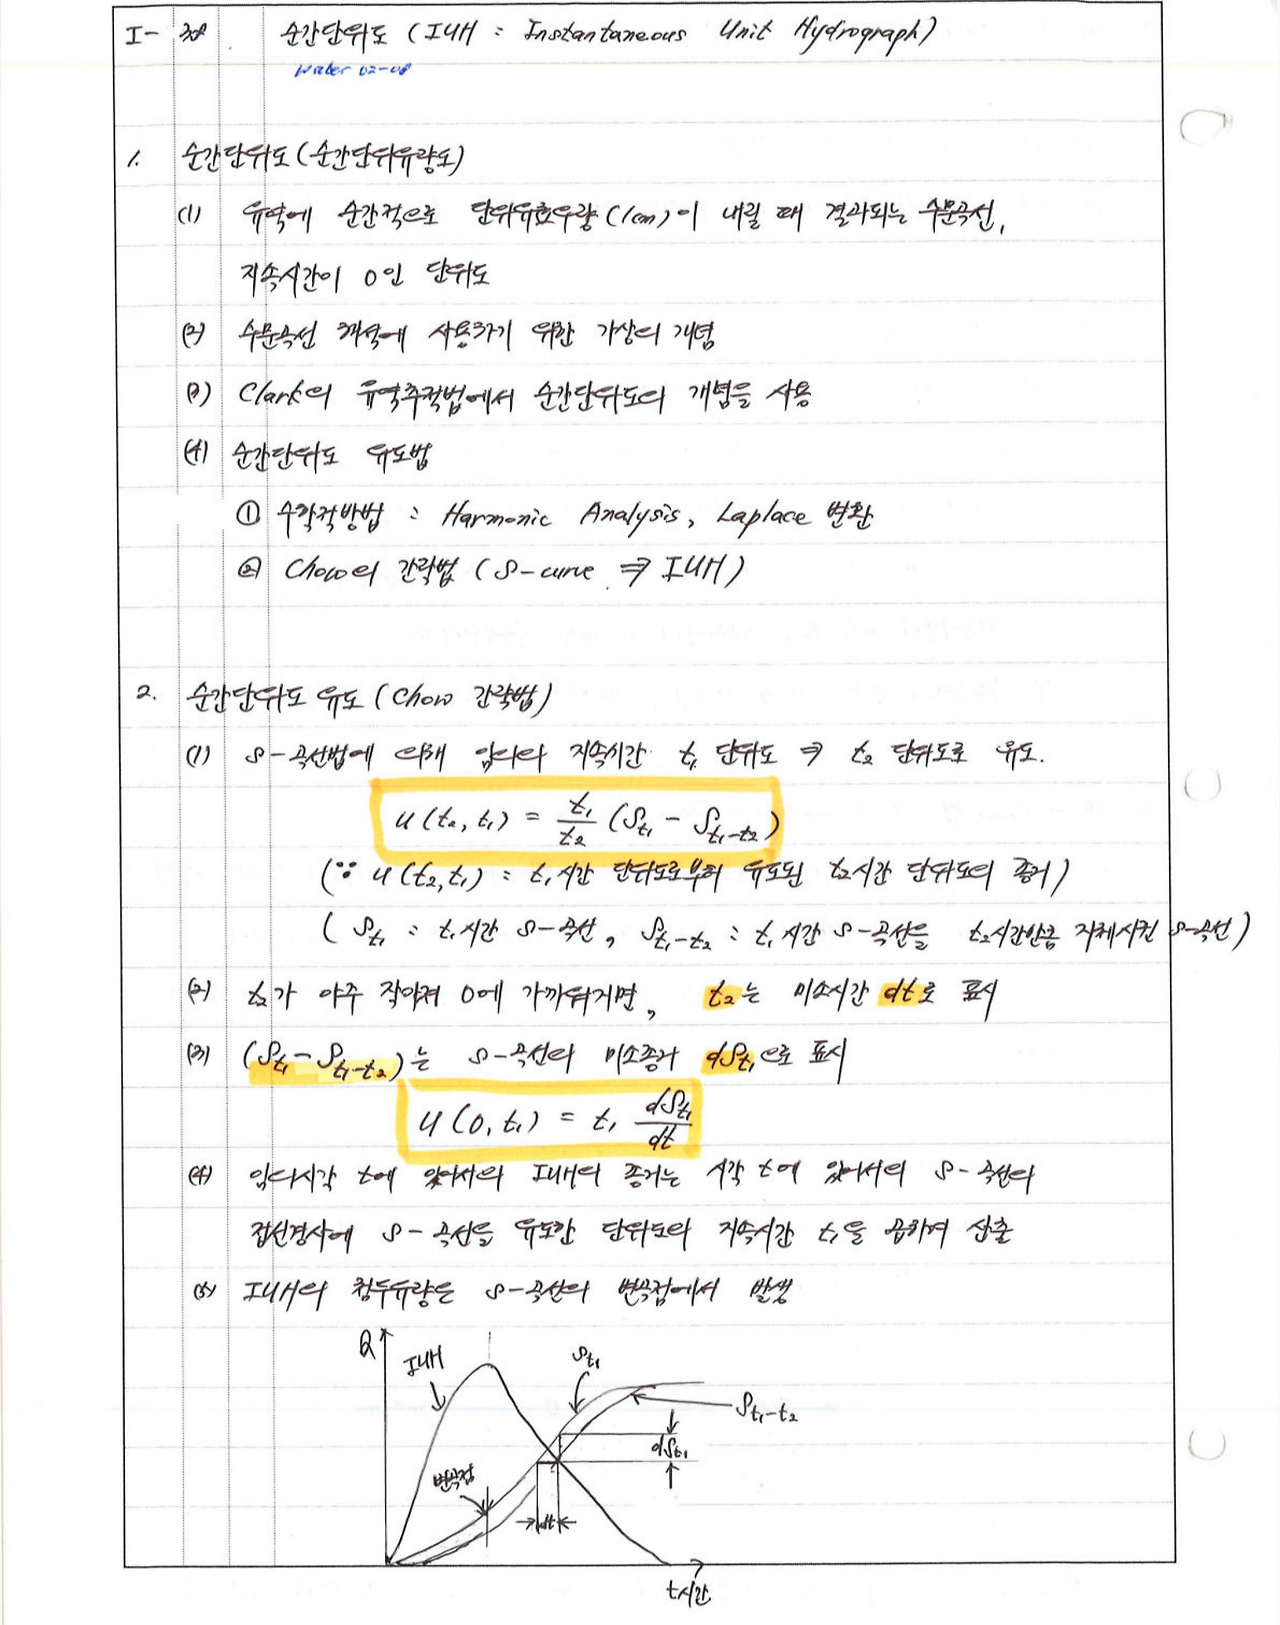 I-38. 순간단위도 (IUH : Instantaneous Unit Hydrograph)
water 02-08
1. 순간단위도 (순간단위유량도)
(1) 유역에 순간적으로 단위유효우량 (1cm)이 내릴 때 결과되는 수문곡선,
지속시간이 0인 단위도
(2) 수문곡선 해석에 사용하기 위한 가상의 개념
(3) Clark의 유역추적법에서 순간단위도의 개념을 사용
(4) 순간단위도 유도법
① 수학적방법 : Harmonic Analysis, Laplace 변환
② Chow의 간략법 (S-curve ⇒ IUH)
2. 순간단위도 유도 (Chow 간략법)
(1) S-곡선법에 의해 임의의 지속시간 t₁ 단위도 ⇒ t₂ 단위도로 유도.
u(t₂, t₁) = t₁/t₂ (S_t₁ - S_t₁-t₂)
(∵ u(t₂,t₁) : t₁시간 단위도로부터 유도된 t₂시간 단위도의 종거)
(S_t₁ : t₁시간 S-곡선, S_t₁-t₂ : t₁시간 S-곡선을 t₂시간만큼 지체시킨 S-곡선)
(2) t₂가 아주 작아져 0에 가까워지면, t₂는 미소시간 dt로 표시
(3) (S_t₁ - S_t₁-t₂)는 S-곡선의 미소종거 dS_t₁으로 표시
u(0, t₁) = t₁ dS_t₁/dt
(4) 임의시각 t에 있어서의 IUH의 종거는 시각 t에 있어서의 S-곡선의
접선경사에 S-곡선을 유도한 단위도의 지속시간 t₁을 곱하여 산출
(5) IUH의 첨두유량은 S-곡선의 변곡점에서 발생
Q
IUH
S_t₁
S_t₁-t₂
dS_t₁
변곡점
dt
t시간